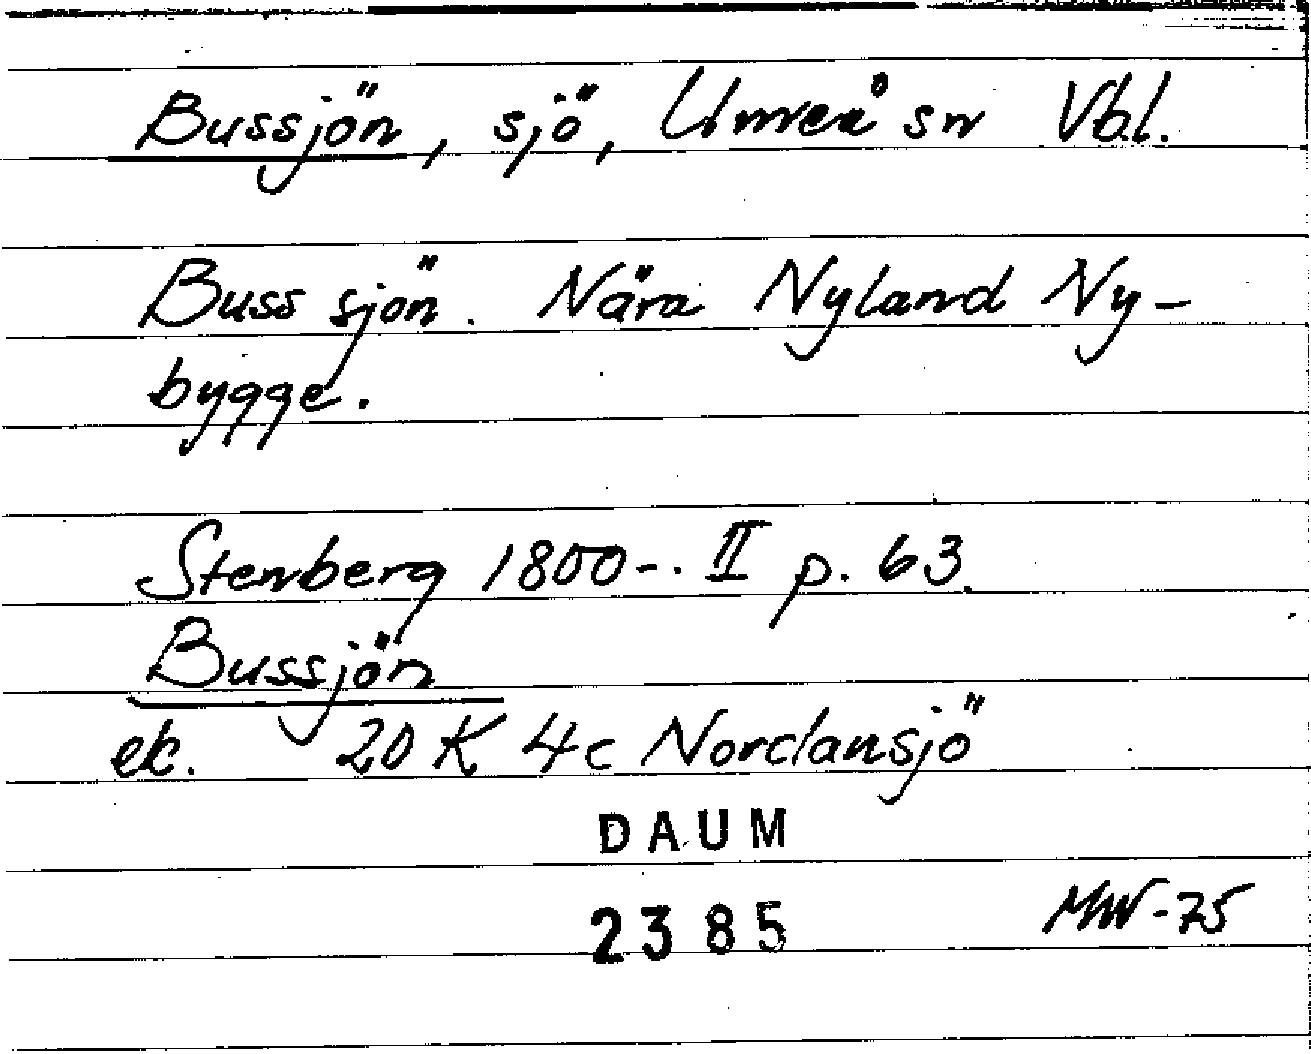 Bussjön, sjö, Umeå sn Vbl.
Buss sjön. Nära Nyland Ny-
bygge.
Stenberg 1800-. II p. 63.
Bussjön
ek. 20 K 4c Nordansjö
DAUM
2385 MW-75